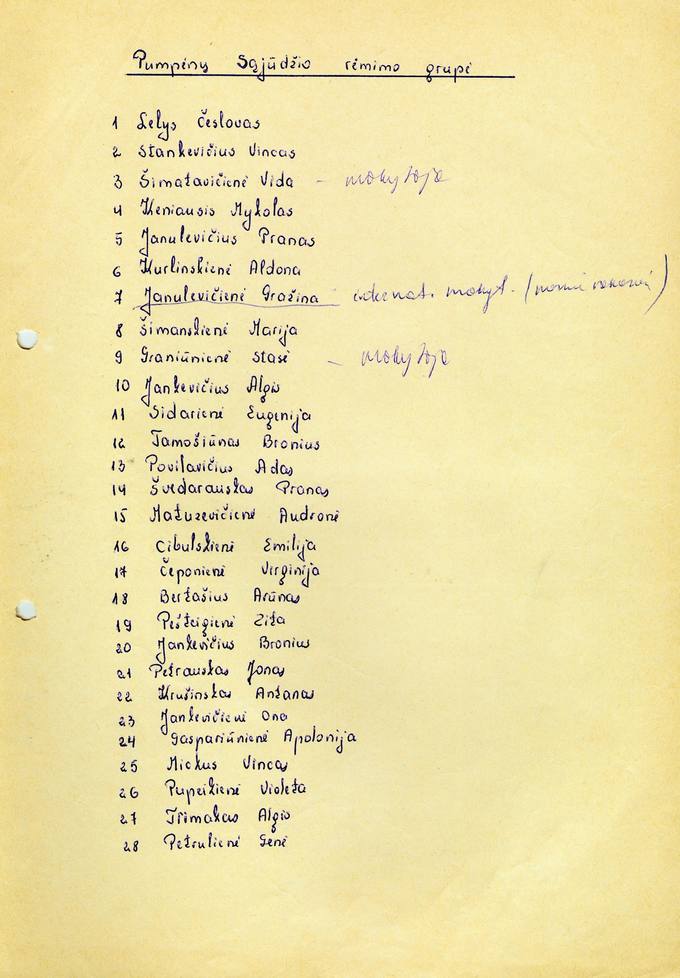 Pumpėnų Sąjūdžio rėmimo grupė
1 Lelys Česlovas
2 Stankevičius Vincas
3 Šimatavičienė Vida – mokytoja
4 Keniausis Mykolas
5 Janulevičius Pranas
6 Kurlinskienė Aldona
7 Janulevičienė Gražina internat. mokyt.
8 Šimanskienė Marija
9 Graniūnienė Stasė – mokytoja
10 Jankevičius Algis
11 Sidarienė Eugenija
12 Tamošiūnas Bronius
13 Povilavičius Adas
14 Švedarauskas Pranas
15 Matuzevičienė Audronė
16 Cibulskienė Emilija
17 Čeponienė Virginija
18 Bertašius Arūnas
19 Pešteigienė Zita
20 Jankevičius Bronius
21 Petrauskas Jonas
22 Krušinskas Antanas
23 Jankevičienė Ona
24 Gaspariūnienė Apolonija
25 Mickus Vincas
26 Pupeikienė Violeta
27 Trimakas Algis
28 Petrulienė Genė